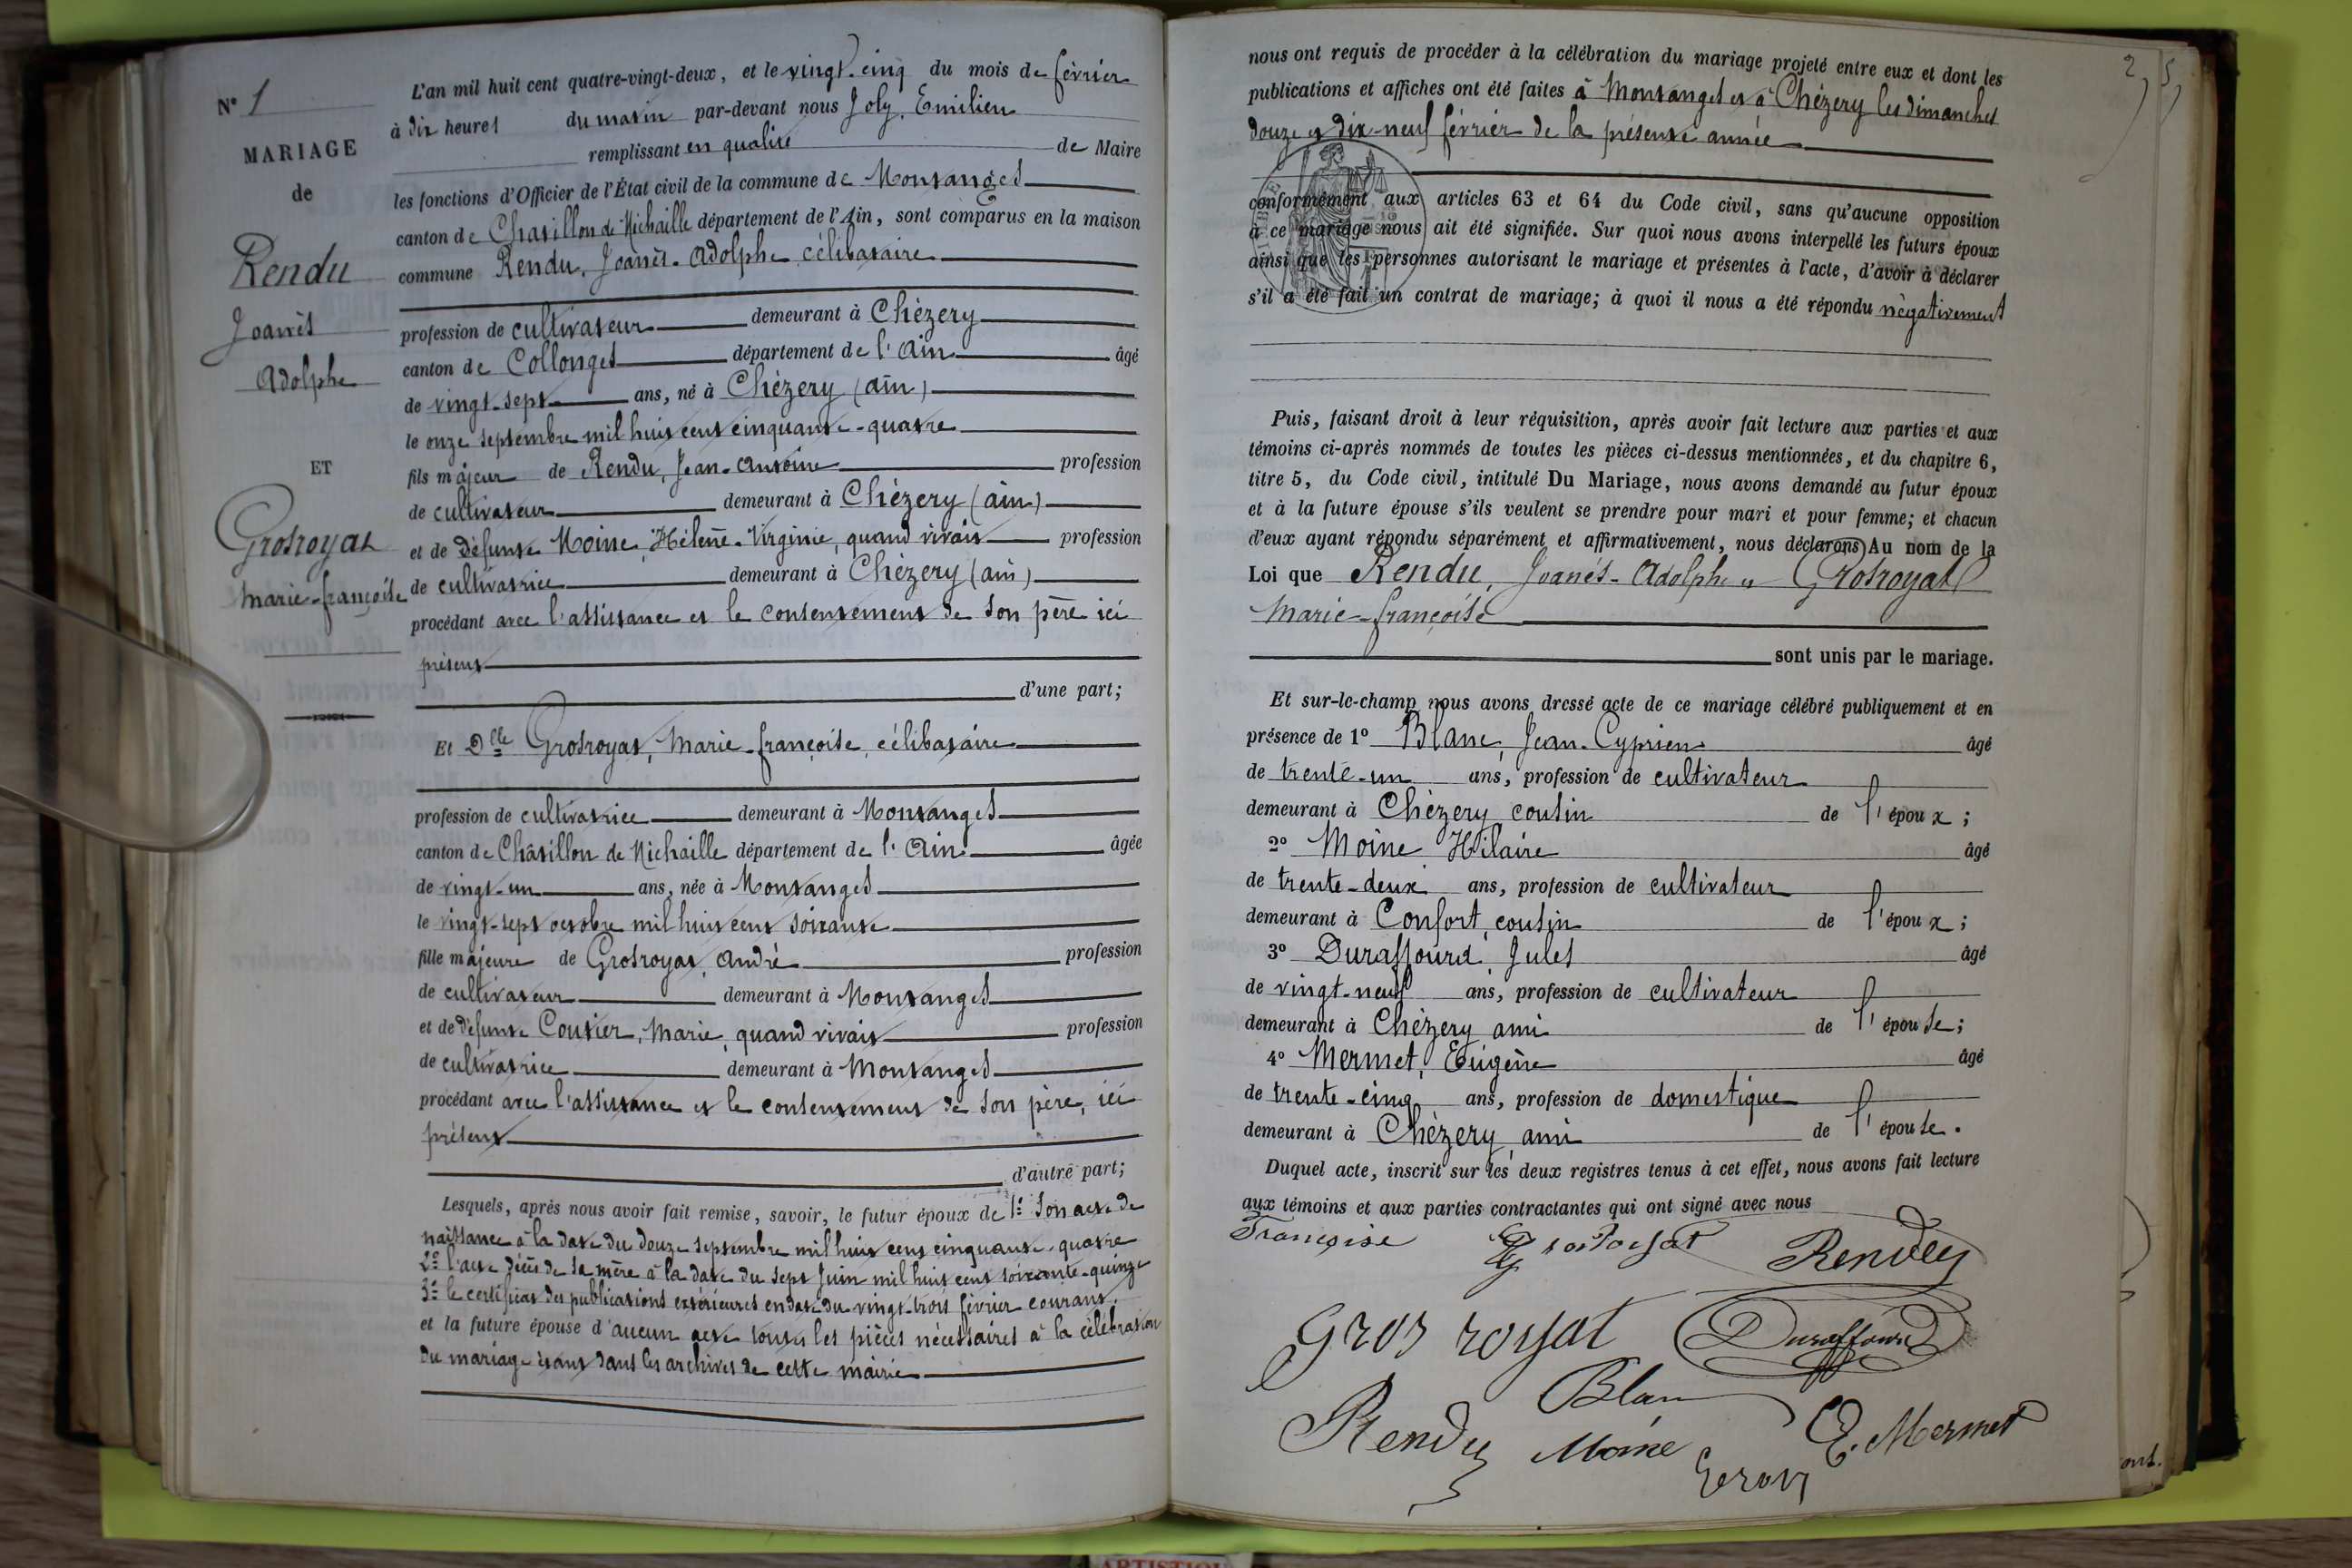 N° 1
MARIAGE
de
Rendu
Joanès
Adolphe
ET
Grosroyat
Marie-françoise
L'an mil huit cent quatre-vingt-deux, et le vingt-cinq du mois de février
à dix heures du matin par-devant nous Joly, Emilien
remplissant en qualité de Maire
les fonctions d'Officier de l'État civil de la commune de Montanges
canton de Chatillon de Michaille département de l'Ain, sont comparus en la maison
commune Rendu, Joanès-Adolphe célibataire
profession de cultivateur demeurant à Chézery
canton de Collonges département de l'Ain âgé
de vingt-sept ans, né à Chézery (ain)
le onze septembre mil huit cent cinquante-quatre
fils majeur de Rendu, Jean-Antoine profession
de cultivateur demeurant à Chézery (ain)
et de défunte Moine, Hélène-Virginie, quand vivait profession
de cultivatrice demeurant à Chézery (ain)
procédant avec l'assistance et le consentement de son père ici
présent
d'une part;
Et Dlle Grosroyat, Marie-françoise, célibataire
profession de cultivatrice demeurant à Montanges
canton de Châtillon de Michaille département de l'Ain âgée
de vingt-un ans, née à Montanges
le vingt-sept octobre mil huit cent soixante
fille majeure de Grosroyat, André profession
de cultivateur demeurant à Montanges
et de défunte Coutier, Marie, quand vivait profession
de cultivatrice demeurant à Montanges
procédant avec l'assistance et le consentement de son père, ici
présent
d'autre part;
Lesquels, après nous avoir fait remise, savoir, le futur époux de 1° Son acte de
naissance à la date du douze septembre mil huit cent cinquante-quatre
2° l'acte décès de sa mère à la date du sept Juin mil huit cent soixante-quinze
3° le certificat des publications extérieures en date du vingt-trois février courant.
et la future épouse d'aucun acte toutes les pièces nécessaires à la célébration
du mariage étant dans les archives de cette mairie
25
nous ont requis de procéder à la célébration du mariage projeté entre eux et dont les
publications et affiches ont été faites à Montanges et à Chézery les dimanches
douze et dix-neuf février de la présente année
conformément aux articles 63 et 64 du Code civil, sans qu'aucune opposition
à ce mariage nous ait été signifiée. Sur quoi nous avons interpellé les futurs époux
ainsi que les personnes autorisant le mariage et présentes à l'acte, d'avoir à déclarer
s'il a été fait un contrat de mariage; à quoi il nous a été répondu négativement
Puis, faisant droit à leur réquisition, après avoir fait lecture aux parties et aux
témoins ci-après nommés de toutes les pièces ci-dessus mentionnées, et du chapitre 6,
titre 5, du Code civil, intitulé Du Mariage, nous avons demandé au futur époux
et à la future épouse s'ils veulent se prendre pour mari et pour femme; et chacun
d'eux ayant répondu séparément et affirmativement, nous déclarons Au nom de la
Loi que Rendu, Joanès-Adolphe et Grosroyat
Marie-françoise
sont unis par le mariage.
Et sur-le-champ nous avons dressé acte de ce mariage célébré publiquement et en
présence de 1° Blanc, Jean-Cyprien âgé
de trente-un ans, profession de cultivateur
demeurant à Chézery cousin de l'époux;
2° Moine Hilaire âgé
de trente-deux ans, profession de cultivateur
demeurant à Confort, cousin de l'époux;
3° Duraffourd, Jules âgé
de vingt-neuf ans, profession de cultivateur
demeurant à Chézery ami de l'épouse;
4° Mermet, Eugène âgé
de trente-cinq ans, profession de domestique
demeurant à Chézery ami de l'épouse.
Duquel acte, inscrit sur les deux registres tenus à cet effet, nous avons fait lecture
aux témoins et aux parties contractantes qui ont signé avec nous
Françoise Rendu
Gros royat Duraffourd
Blan
Rendu Moine E. Mermet